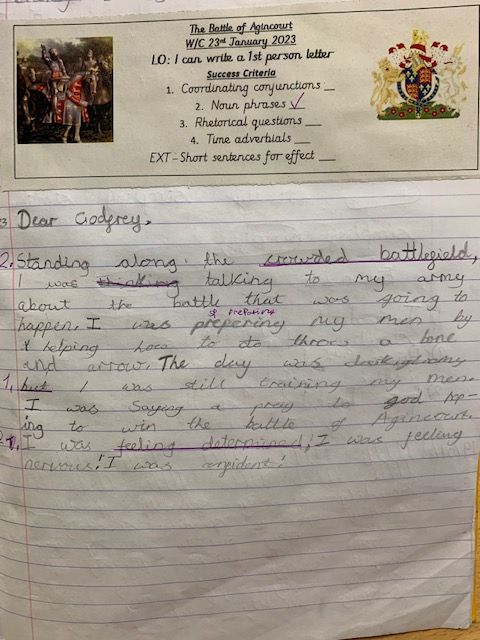 The Battle of Agincourt
W/C 23rd January 2023
LO: I can write a 1st person letter
Success Criteria
1. Coordinating conjunctions __
2. Noun phrases ✓
3. Rhetorical questions __
4. Time adverbials __
EXT – Short sentences for effect __
Dear Godfrey,
2. Standing along the crowded battlefield,
I was thinking talking to my army
about the battle that was going to
preparing
happen. I was prepering my men by
helping how to do throw a bone
and arrow. The day was
1. but I was still training my men.
I was saying a pray to god hop-
ing to win the battle of Agincourt.
I was feeling determined, I was feeling
nervous! I was confident!